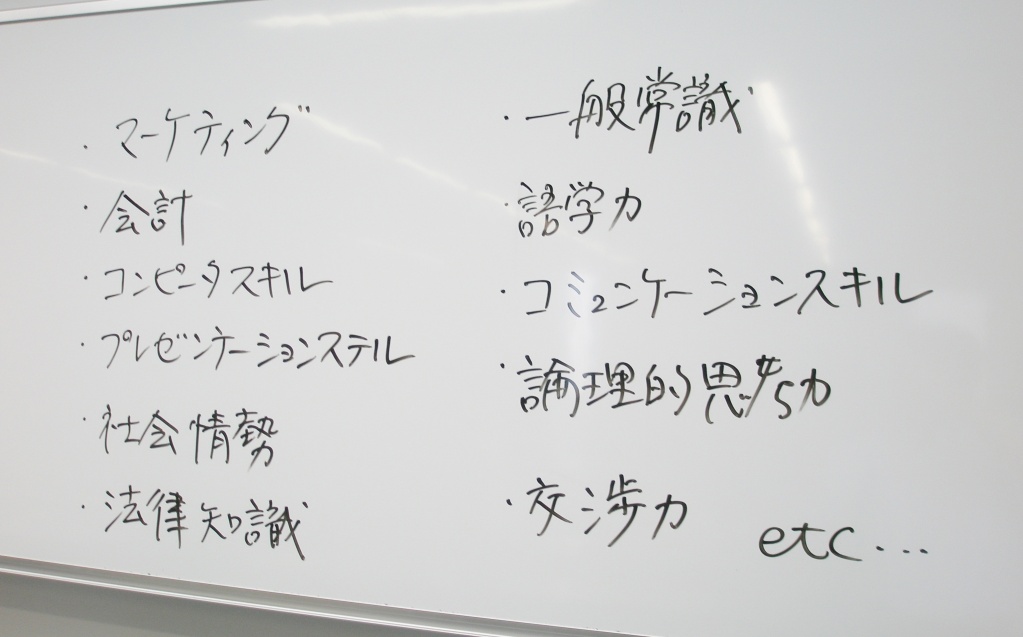 ・マーケティング
・会計
・コンピータスキル
・プレゼンテーションステル
・社会情勢
・法律知識
・一般常識
・語学力
・コミュニケーションスキル
・論理的思考力
・交渉力
etc...